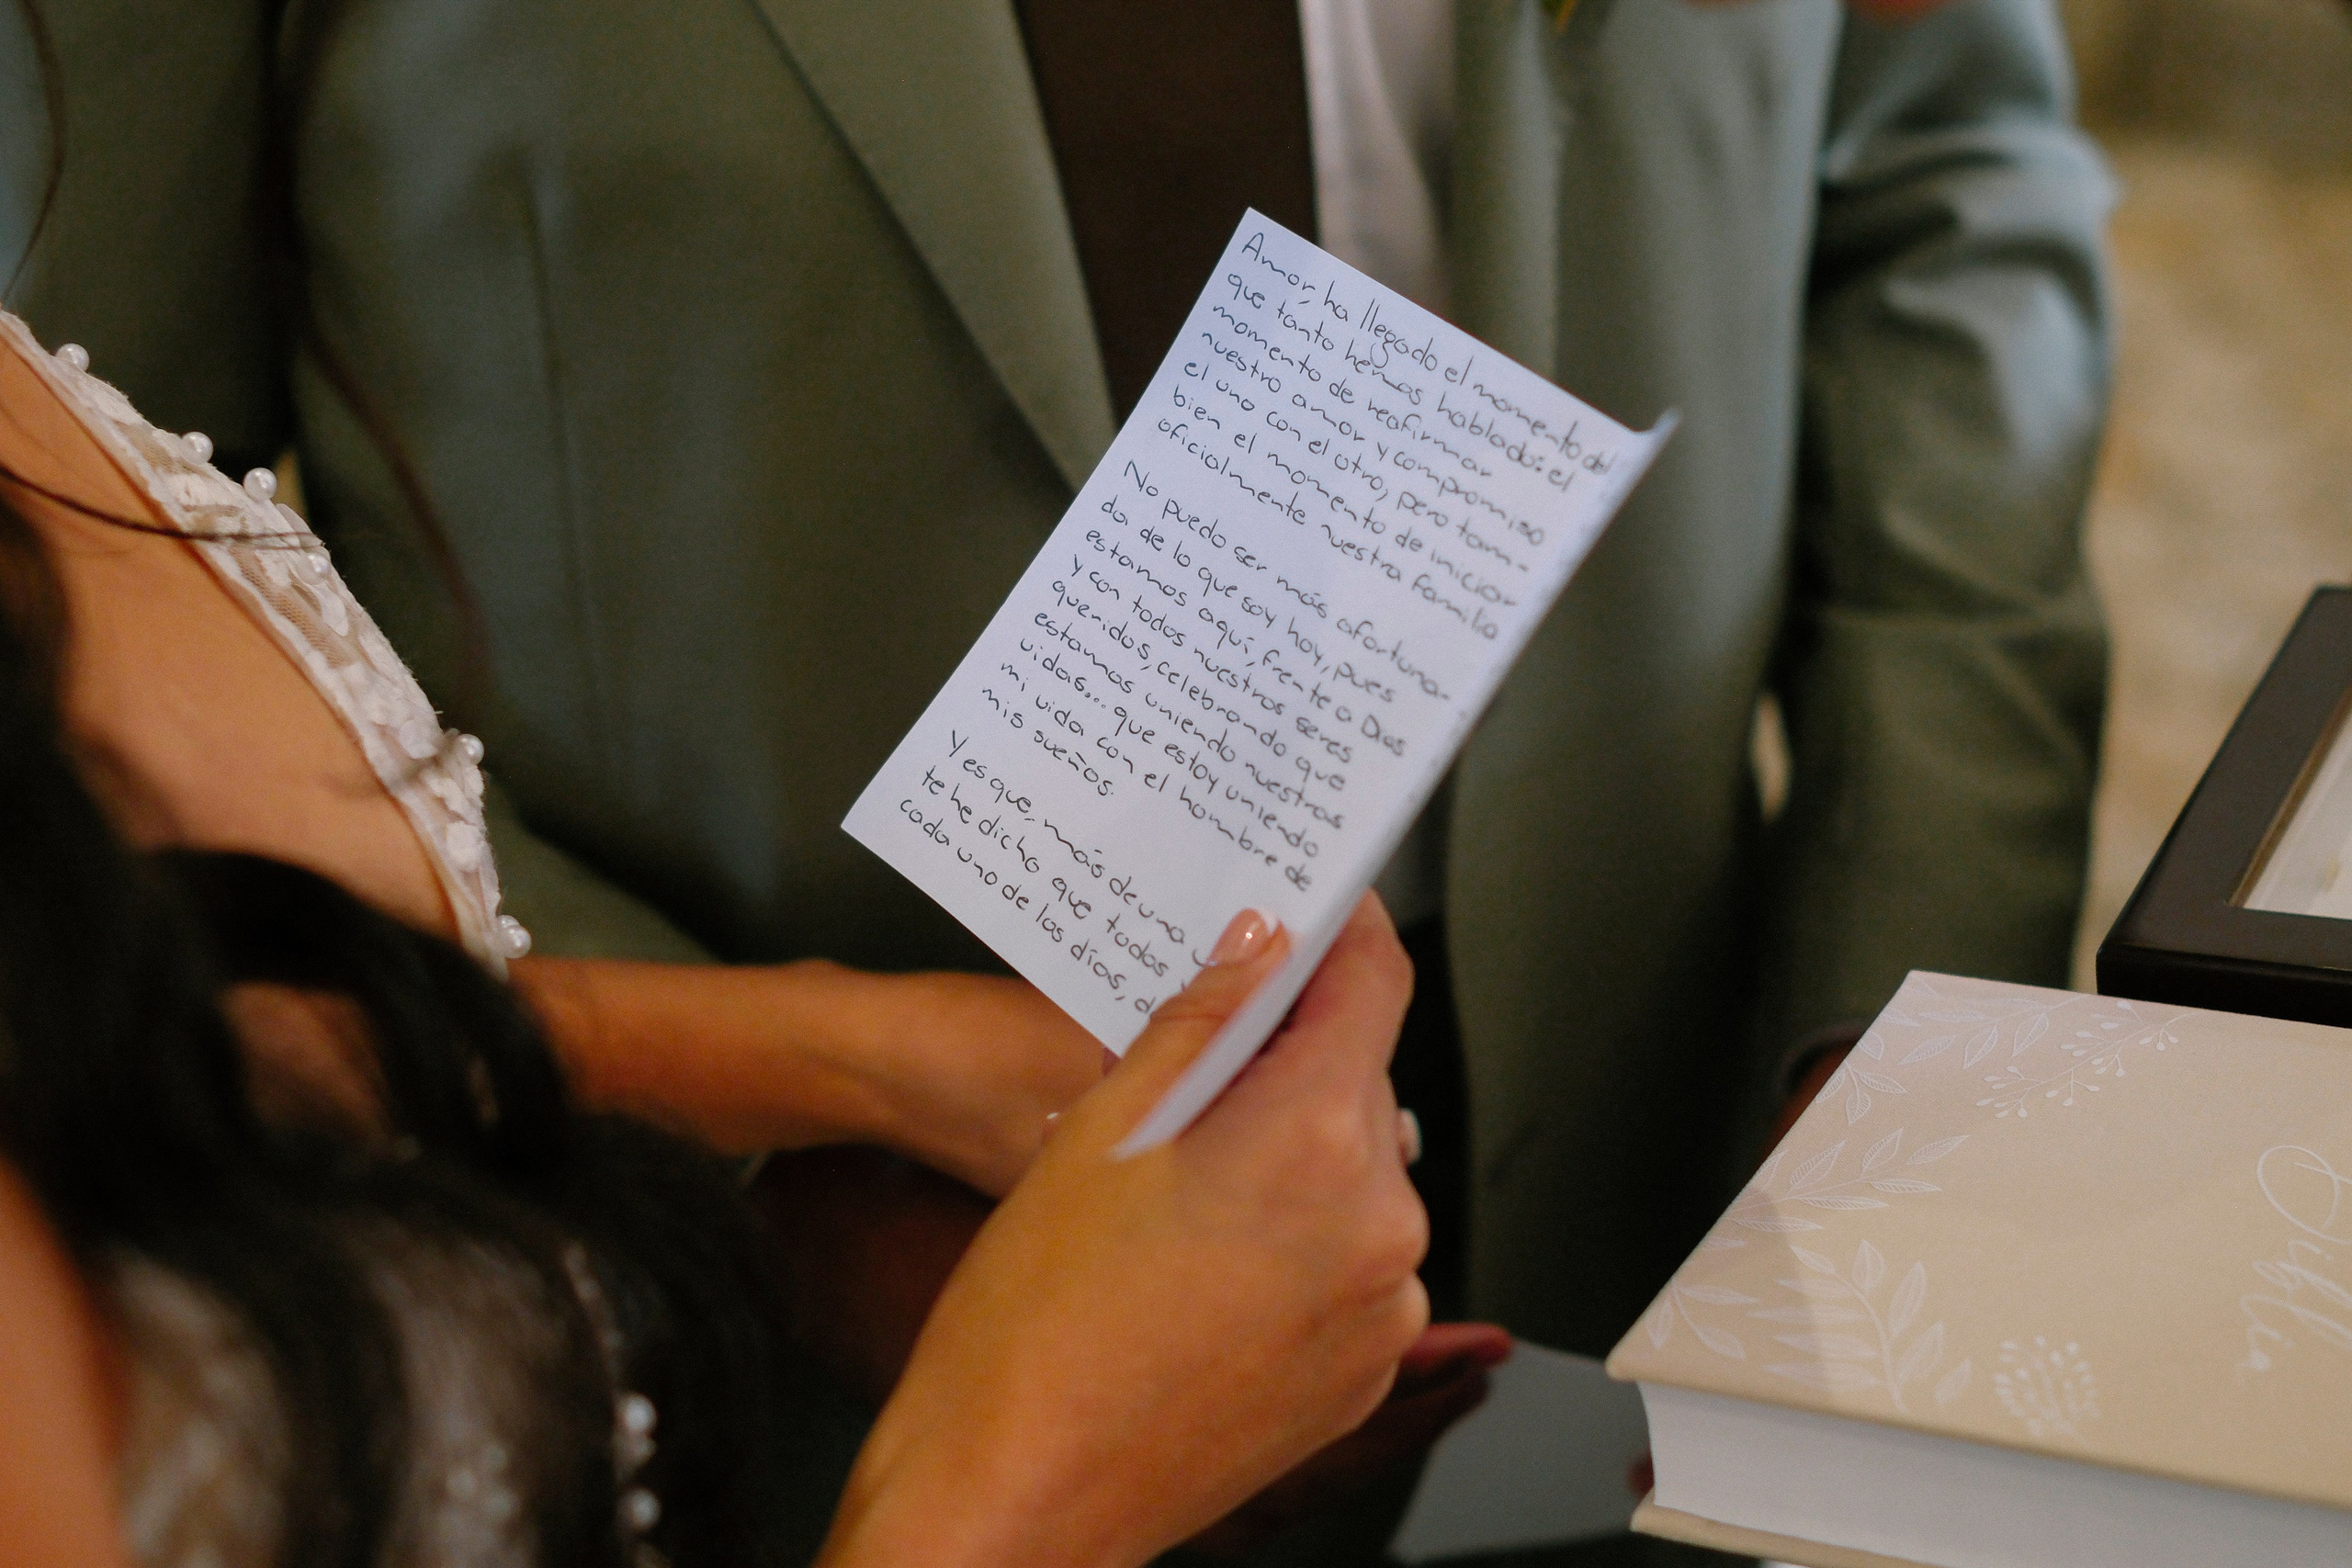 Amor, ha llegado el momento del
que tanto hemos hablado: el
momento de reafirmar
nuestro amor y compromiso
el uno con el otro, pero tam-
bien el momento de iniciar
oficialmente nuestra familia
No puedo ser más afortuna-
da de lo que soy hoy, pues
estamos aquí, frente a Dios
y con todos nuestros seres
queridos, celebrando que
estamos uniendo nuestras
vidas... que estoy uniendo
mi vida con el hombre de
mis sueños.
Y es que, más de una
te he dicho que todos
cada uno de los días,
Biblia